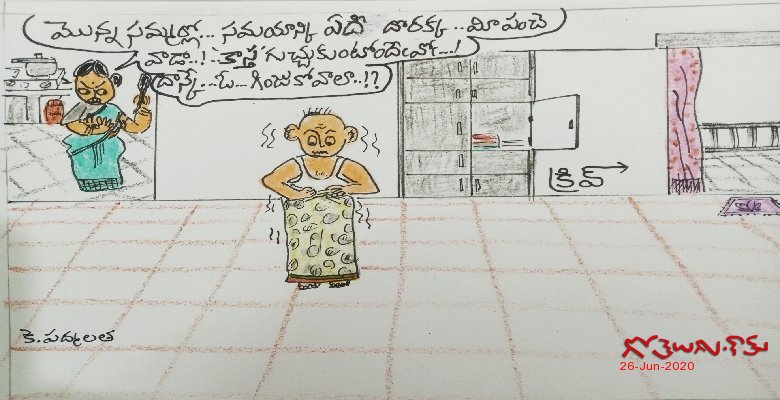 మొన్న సమ్మర్లో... సమయానికి ఏదీ దొరక్క.. మీ పంచె
వాడా..! కాస్త గుచ్చుకుంటోందేమో...!
దాన్కే...ఓ...గింజుకోవాలా..!?
క్రిప్
కె.పద్మలత
గోతెలుగు.కామ్
26-Jun-2020